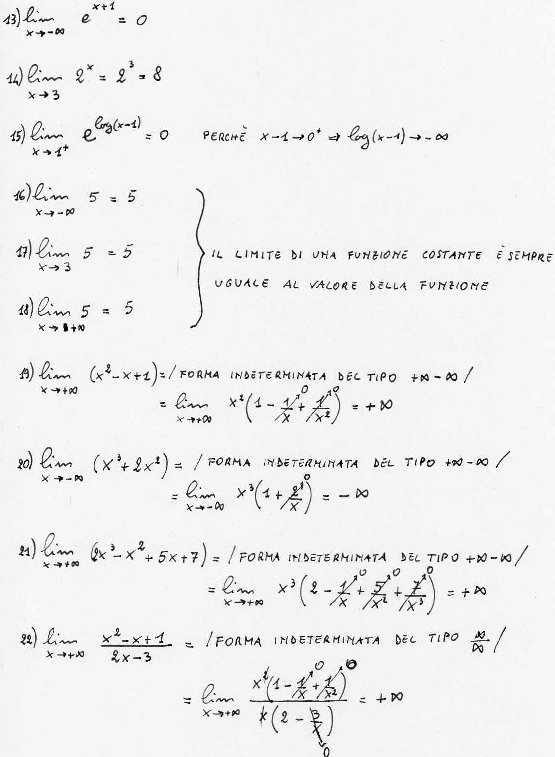 13) lim e^(x+1) = 0
x→-∞
14) lim 2^x = 2^3 = 8
x→3
15) lim e^(log(x-1)) = 0 PERCHÈ x-1→0⁺ ⇒ log(x-1)→-∞
x→1⁺
16) lim 5 = 5
x→-∞
17) lim 5 = 5
x→3
18) lim 5 = 5
x→+∞
IL LIMITE DI UNA FUNZIONE COSTANTE È SEMPRE
UGUALE AL VALORE DELLA FUNZIONE
19) lim (x²-x+1) = / FORMA INDETERMINATA DEL TIPO +∞-∞ /
x→+∞
= lim x²(1 - 1/x + 1/x²) = +∞
x→+∞
20) lim (x³+2x²) = / FORMA INDETERMINATA DEL TIPO +∞-∞ /
x→-∞
= lim x³(1 + 2/x) = -∞
x→-∞
21) lim (2x³-x²+5x+7) = / FORMA INDETERMINATA DEL TIPO +∞-∞ /
x→+∞
= lim x³(2 - 1/x + 5/x² + 7/x³) = +∞
x→+∞
22) lim (x²-x+1)/(2x-3) = / FORMA INDETERMINATA DEL TIPO ∞/∞ /
x→+∞
= lim x²(1 - 1/x + 1/x²)/x(2 - 3/x) = +∞
x→+∞